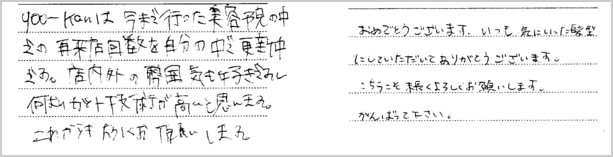 yoo-kanは 今まで行った美容院の中
での 再来店回数を自分の中で更新中
です。店内外の雰囲気も好きですし
何よりカット技術が高いと思います。
これからもよろしくお願いします
おめでとうございます。いつも 気にいった髪型
にしていただいてありがとうございます。
こちらこそ 末長くよろしくお願いします。
がんばって下さい。